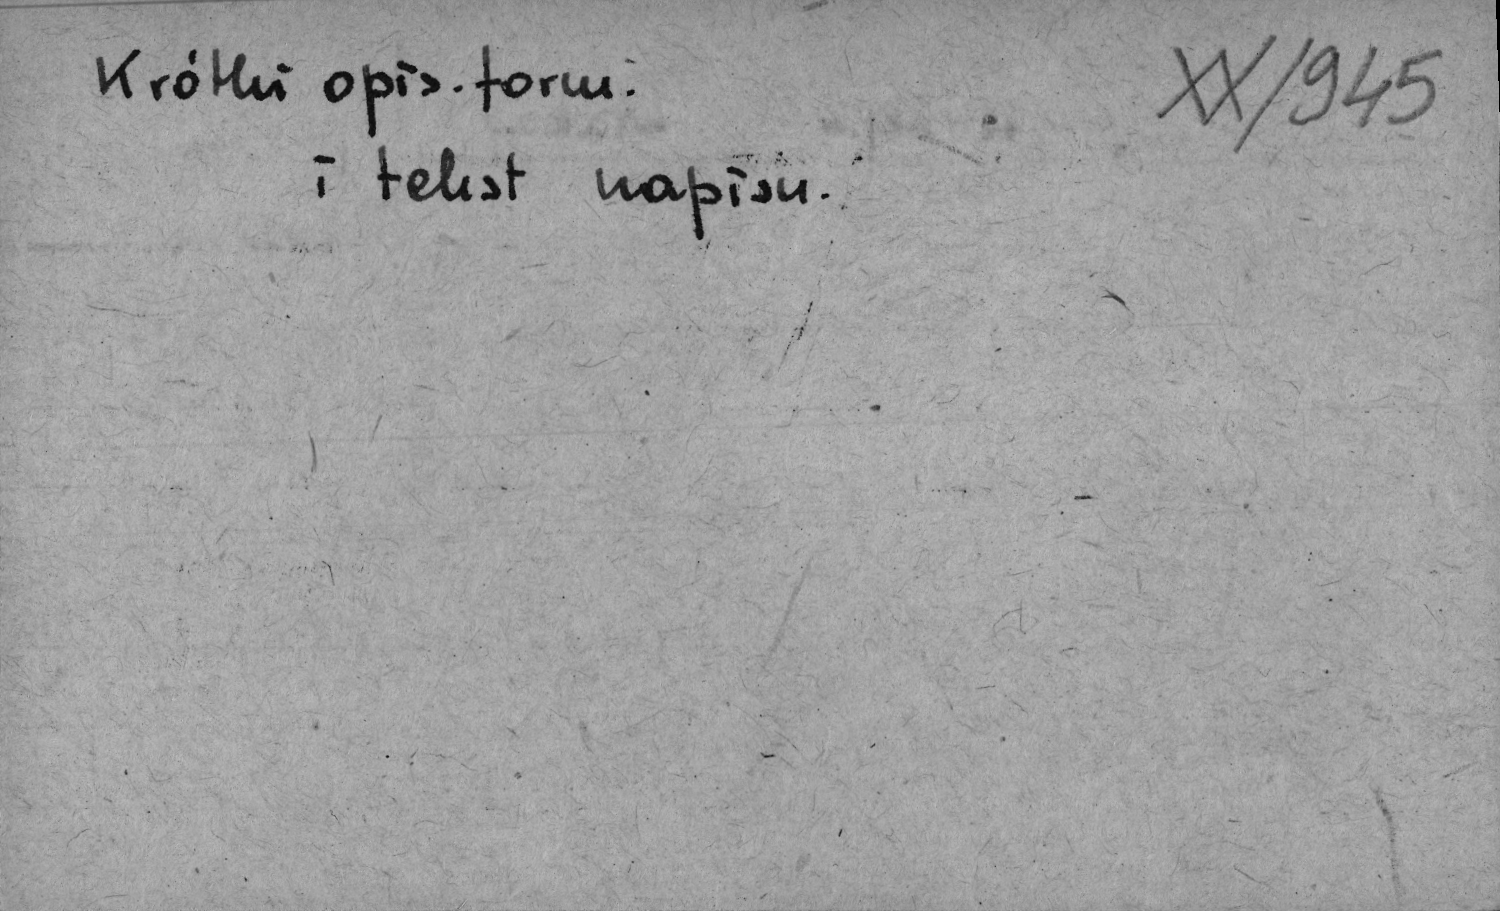 Krótki opis form:
XX/945
i tekst napisu.